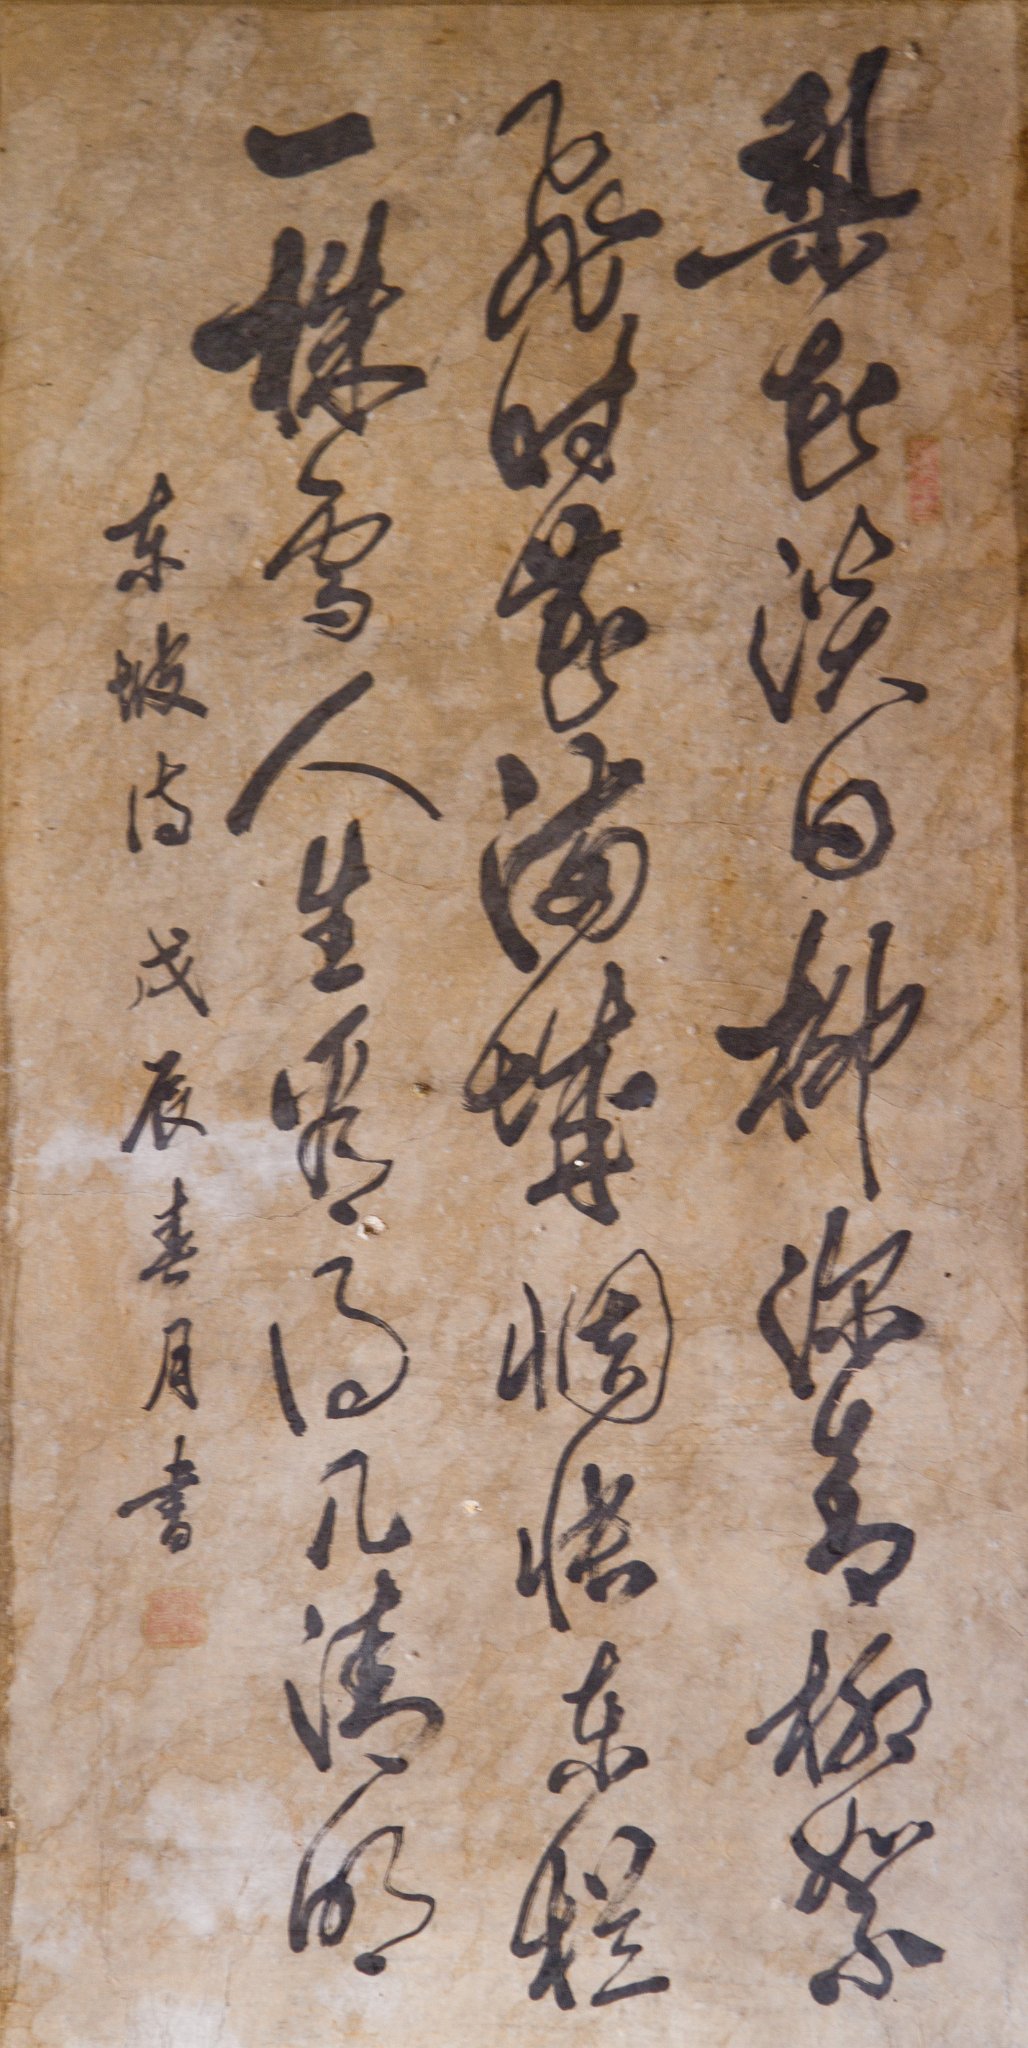 梨花淡白柳深青柳絮
飛時花滿城惆悵东栏
一株雪人生看得几清明
东坡诗戊辰春月書